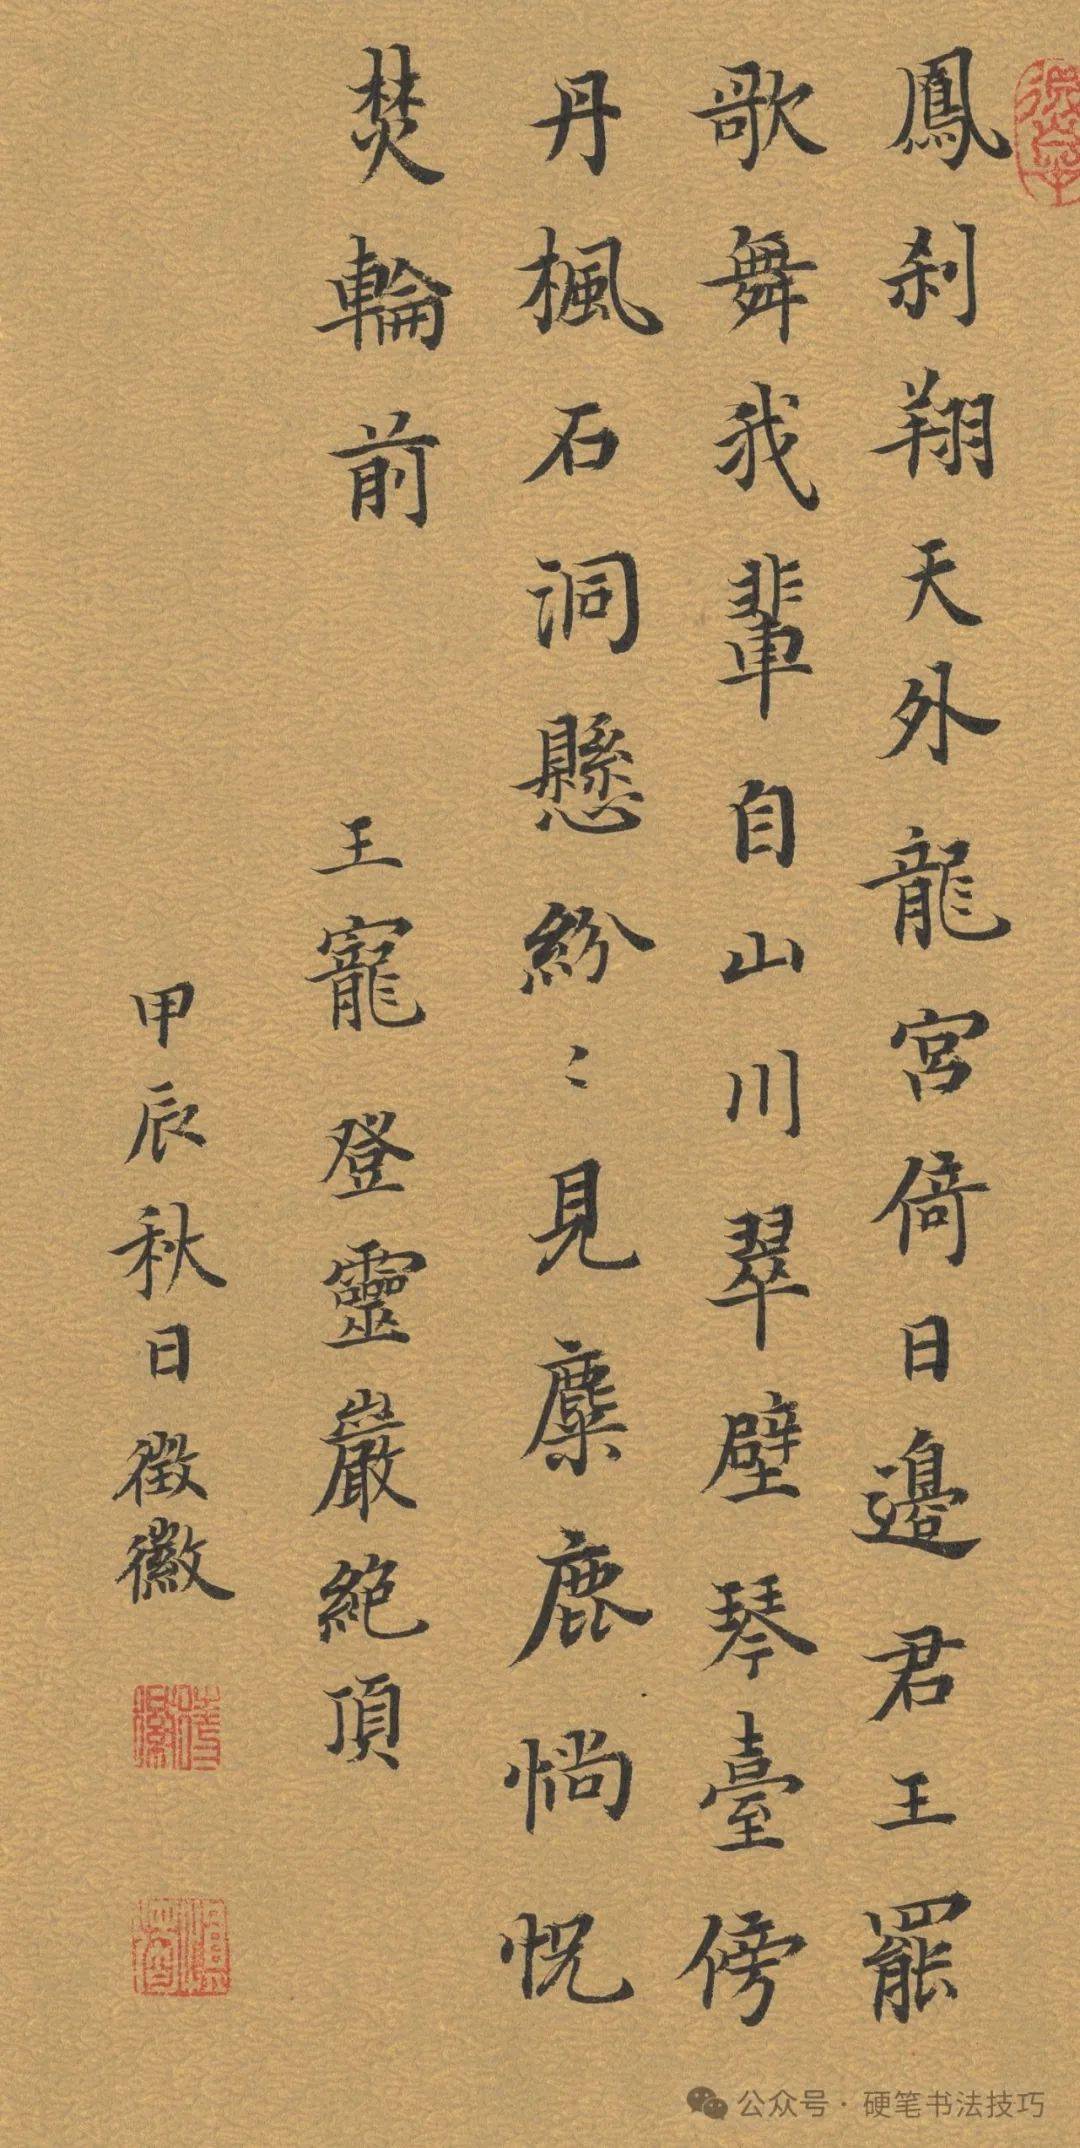 鳳刹翔天外龍宮倚日邊君王罷
歌舞我輩自山川翠壁琴臺傍
丹楓石洞懸紛〻見麋鹿惝怳
焚輪前
王寵登靈巖絕頂
甲辰秋日徵徽
公众号·硬笔书法技巧